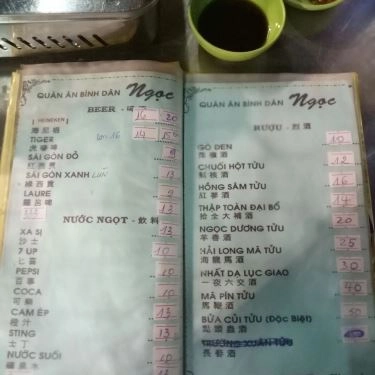 QUÁN ĂN BÌNH DÂN Ngọc
BEER - 啤
16 20
[ HEINEKEN ]
海尼根
TIGER lon 16 14 15
虎啤
SÀI GÒN ĐỎ 9
SÀI GÒN XANH LÙN 13
LAURE 9
333 13
NƯỚC NGỌT - 飲料
XA SỊ 13
沙士
7 UP 10
七喜
PEPSI 10
百事
COCA 10
可樂
CAM ÉP 13
橙汁
STING 13
NƯỚC SUỐI 10
礦泉水
11
QUÁN ĂN BÌNH DÂN Ngọc
RƯỢU - 烈酒
GÒ ĐEN 10
CHUỐI HỘT TỬU 12
HỒNG SÂM TỬU 16
紅參酒
THẬP TOÀN ĐẠI BỔ 14
拾全大補酒
NGỌC DƯƠNG TỬU 20
羊春酒
HẢI LONG MÃ TỬU 25
海龍馬酒
NHẤT DẠ LỤC GIAO 30
一夜六交酒
MÃ PÍN TỬU 40
馬鞭酒
BỬA CỦI TỬU (Độc Biệt) 50
TRƯỜNG XUÂN TỬU
長春酒